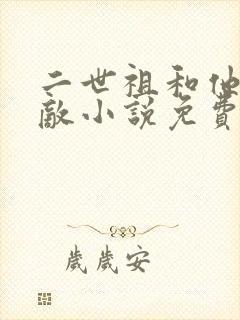 二世祖和他
敵小說免費
歲歲安